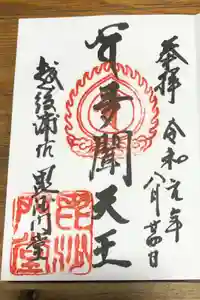 奉拝
令和元年
八月廿四日
毘沙聞天王
越後浦佐毘沙門堂
毘沙
門堂